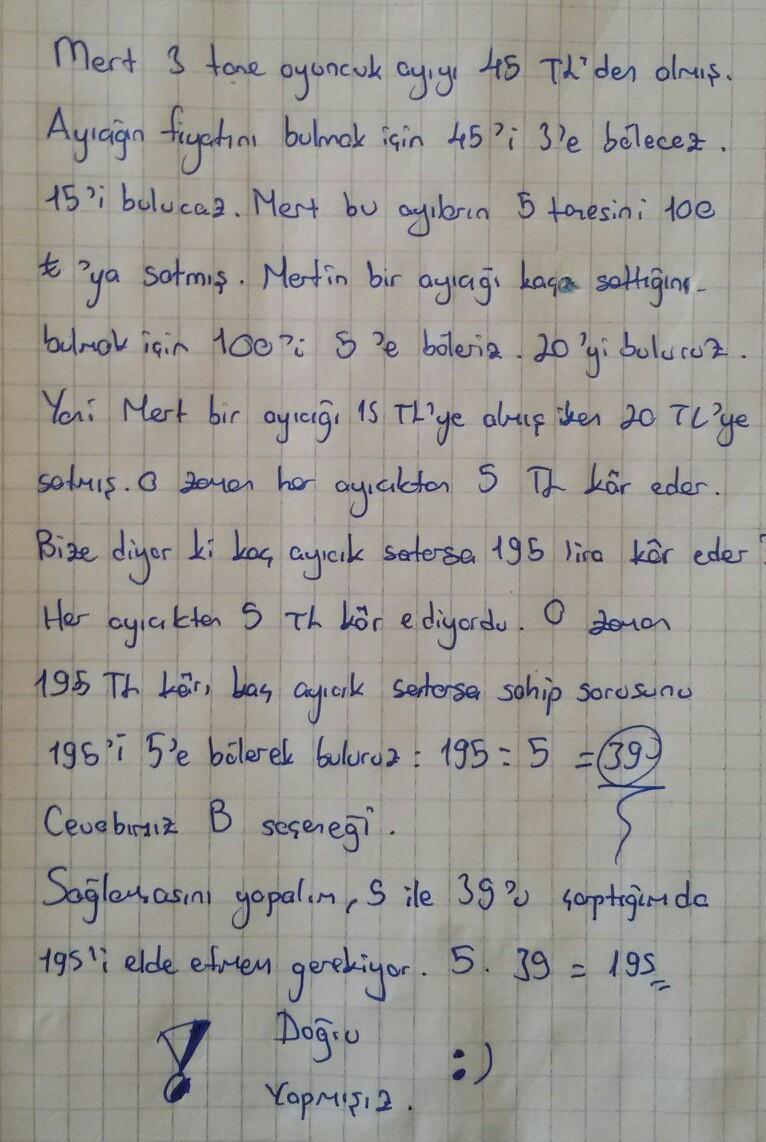 Mert 3 tane oyuncuk ayıyı 45 TL'den almış.
Ayıcığın fiyatını bulmak için 45'i 3'e bölecez.
15'i bulucaz. Mert bu ayıların 5 tanesini 100
₺'ya satmış. Mertin bir ayıcağı kaça sattığını
bulmak için 100'i 5'e böleriz. 20'yi buluruz.
Yani Mert bir ayıcığı 15 TL'ye almış iken 20 TL'ye
satmış. O zaman her ayıcıktan 5 TL kâr eder.
Bize diyor ki kaç ayıcık satarsa 195 lira kâr eder?
Her ayıcıktan 5 TL kâr ediyordu. O zaman
195 TL kârı kaç ayıcık satarsa sahip sorusunu
195'i 5'e bölerek buluruz : 195 ÷ 5 = 39
Cevabımız B seçeneği.
Sağlamasını yapalım, 5 ile 39'u çarptığımda
195'i elde etmem gerekiyor. 5 . 39 = 195
! Doğru :)
Yapmışız.